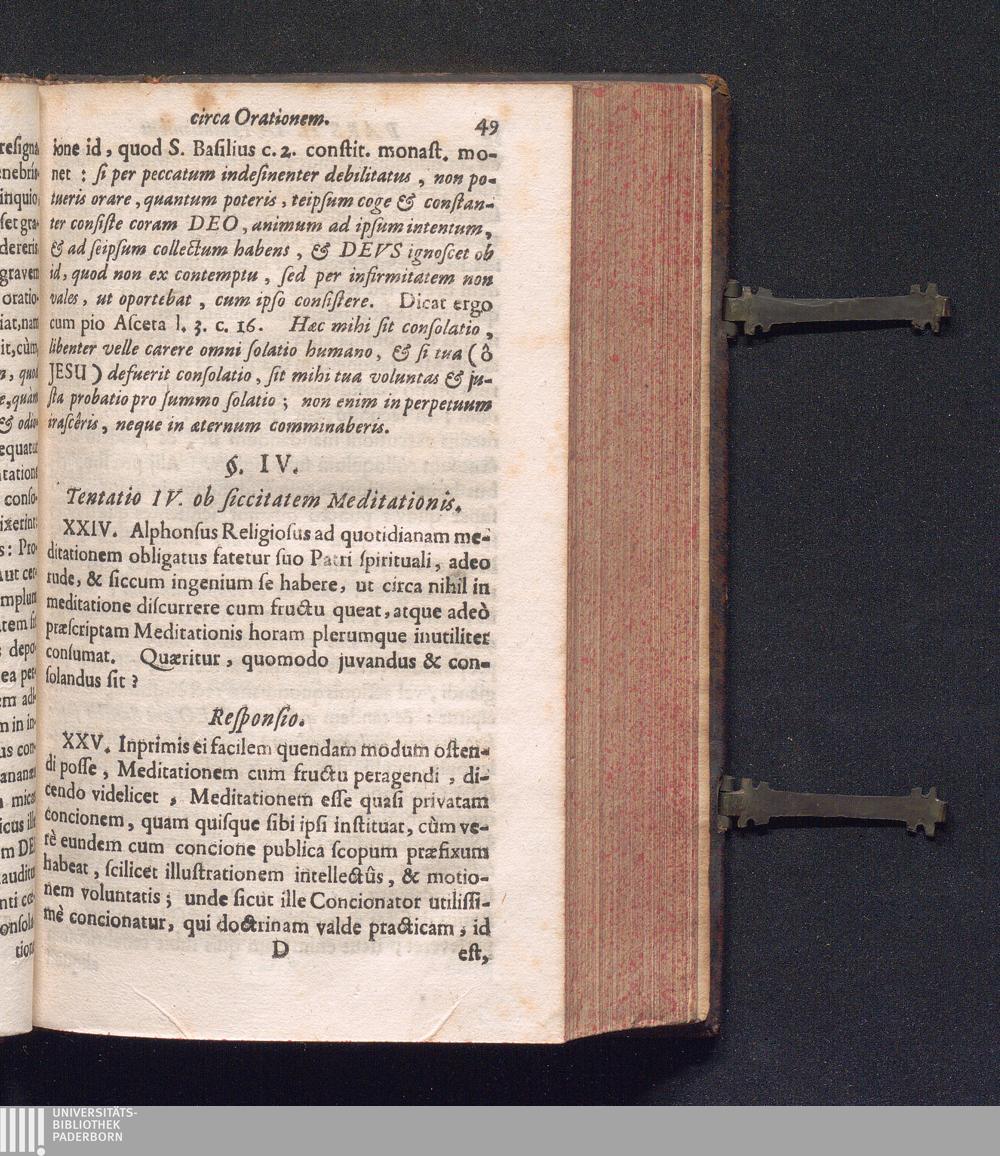 circa Orationem. 49
ione id, quod S. Baſilius c. 2. conſtit. monaſt. mo-
net : ſi per peccatum indeſinenter debilitatus , non po-
tueris orare , quantum poteris , teipſum coge & conſtan-
ter conſiſte coram DEO, animum ad ipſum intentum,
& ad ſeipſum collectum habens , & DEVS ignoſcet ob
id, quod non ex contemptu , ſed per infirmitatem non
vales, ut oportebat , cum ipſo conſiſtere. Dicat ergo
cum pio Aſceta l. 3. c. 16. Hæc mihi ſit conſolatio,
libenter velle carere omni ſolatio humano, & ſi tua (ô
JESU) defuerit conſolatio, ſit mihi tua voluntas & ju-
ſta probatio pro ſummo ſolatio ; non enim in perpetuum
iraſcêris, neque in æternum comminaberis.
§. IV.
Tentatio IV. ob ſiccitatem Meditationis.
XXIV. Alphonſus Religioſus ad quotidianam me-
ditationem obligatus fatetur ſuo Patri ſpirituali, adeo
rude, & ſiccum ingenium ſe habere, ut circa nihil in
meditatione diſcurrere cum fructu queat, atque adeò
præſcriptam Meditationis horam plerumque inutiliter
conſumat. Quæritur, quomodo juvandus & con-
ſolandus ſit ?
Reſponſio.
XXV. Inprimis ei facilem quendam modum oſten-
di poſſe, Meditationem cum fructu peragendi , di-
cendo videlicet , Meditationem eſſe quaſi privatam
concionem, quam quiſque ſibi ipſi inſtituat, cùm ve-
rè eundem cum concione publica ſcopum præfixum
habeat, ſcilicet illuſtrationem intellectûs, & motio-
nem voluntatis ; unde ſicut ille Concionator utiliſſi-
mè concionatur, qui doctrinam valde practicam, id
D eſt,
UNIVERSITÄTS-
BIBLIOTHEK
PADERBORN